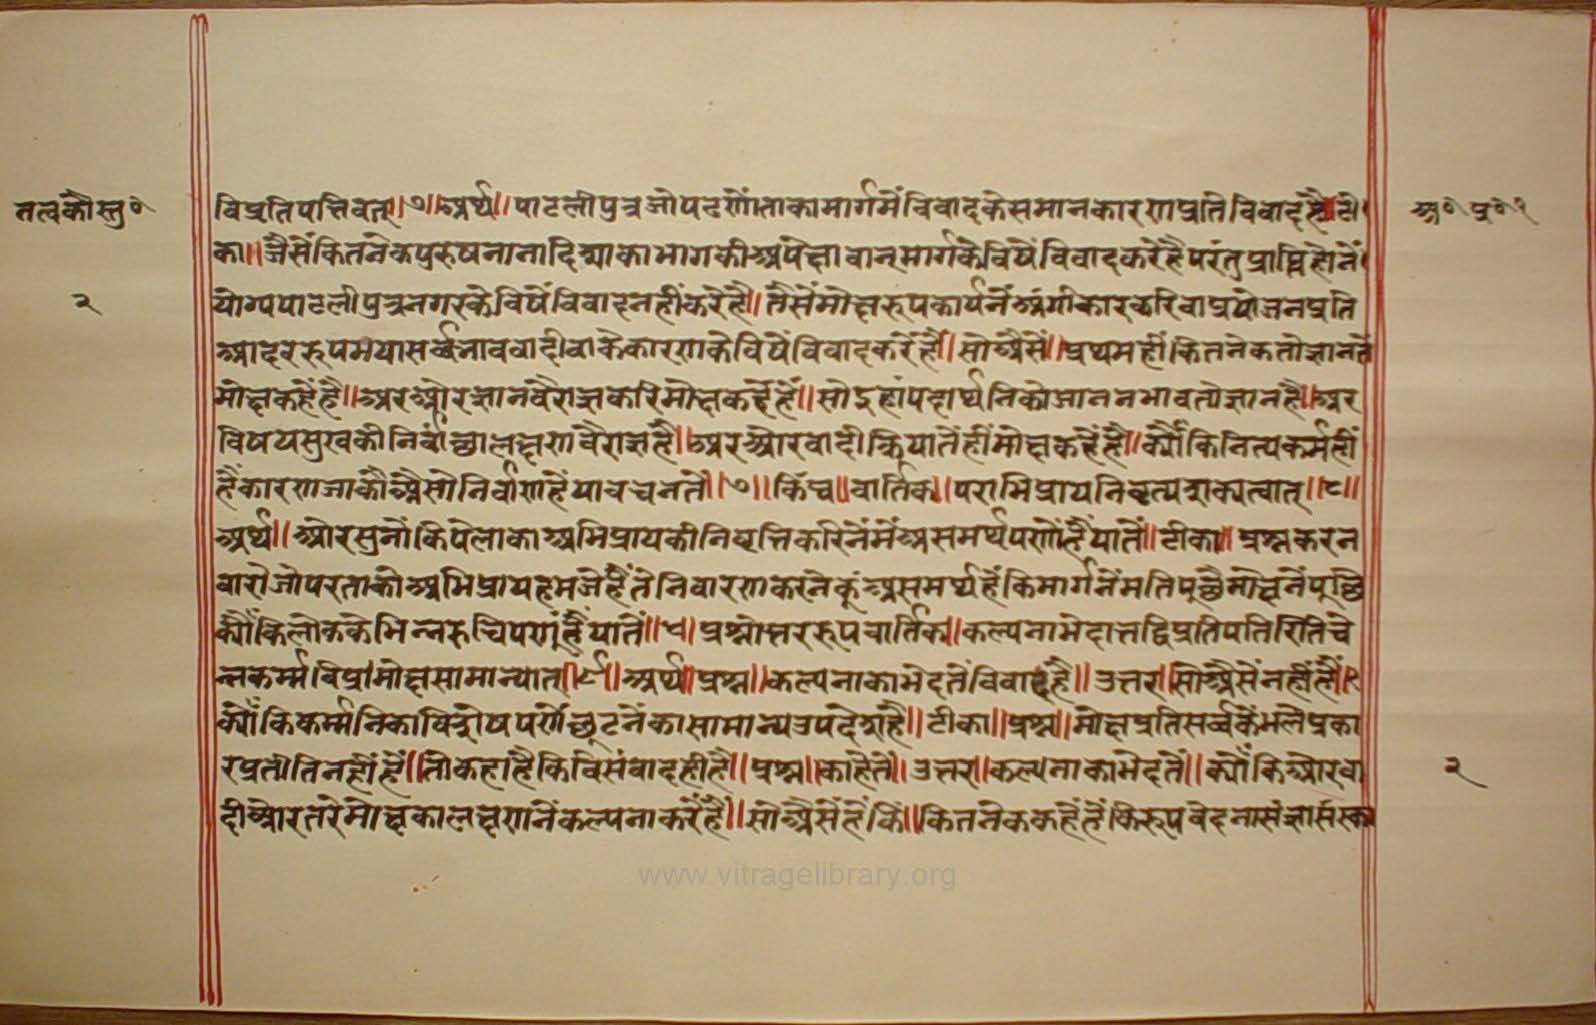 तत्वकौस्तु०
अ० प्र० १
२
विप्रतिपत्तिवत्॥७॥अर्थ॥पाटलीपुत्रजोपटणोंताकामार्गमेंविवादकेसमानकारणप्रतिविवादहै॥टी
का॥जैसेंकितनेकपुरुषनानादिशाकाभागकीअपेक्षावानमार्गकेविषेंविवादकरेहैपरंतुप्राप्तिहोनें
योग्यपाटलीपुत्रनगरकेविषेंविवादनहींकरेहै॥तैसेंमोक्षरूपकार्यनेंअंगीकारकरिवाप्रयोजनप्रति
आदररूपभयासर्व्व वादीवाकैकारणकेविषेंविवादकरेंहैं॥सोअैसें॥प्रथमहींकितनेकतोज्ञानतें
मोक्षकहेंहै॥अरऔरज्ञानवैराज्ञकरिमोक्षकहेंहें॥सोइहांपदार्थनिकोजाननभावतोज्ञानहै॥अर
विषयसुखकीनिर्वांछालक्षणवैराज्ञहै॥अरऔरवादीक्रियातेंहींमोक्षकहेंहै॥क्योंकिनित्यकर्महीं
हैंकारणजाकौअैसौनिर्वाणहेंयावचनतें॥७॥किंच॥वार्तिक॥पराभिप्रायनिवृत्यशक्यत्वात्॥८॥
अर्थ॥ओरसुनोंकिपेलाकाअभिप्रायकीनिवृत्तिकरिनेंमेंअसमर्थपणोंहैंयातें॥टीका॥प्रश्नकरन
वारोजोपरताकोअभिप्रायहमजेहैंतेनिवारणकरनेकूंअसमर्थहेंकिमार्गनेंमतिपुछैमोक्षनेंपुछि
क्योंकिलोककेभिन्नरुचिपणूंहैंयातें॥८॥प्रश्नोत्तररूपवार्तिक॥कल्पनाभेदात्तद्विप्रतिपतिरितिचे
न्नकर्म्मविप्रमोक्षसामान्यात्॥९॥अर्थ॥प्रश्न॥कल्पनाकाभेदतेंविवादहै॥उत्तर॥सोअैसेंनहींहैं॥९
क्योंकिकर्म्मनिकाविशेषपणेंछूटनेंकासामान्यउपदेशहै॥टीका॥प्रश्न॥मोक्षप्रतिसर्व्वकेंभलेप्रका
रप्रतीतिनहींहें॥तोकहाहैकिविसंवादहीहै॥प्रश्न॥काहेतें॥उत्तर॥कल्पनाकाभेदतें॥क्योंकिऔरवा
दीऔरतरेमोक्षकालक्षणनेंकल्पनाकरेंहै॥सोअैसेंहेंकिं॥कितनेककहेंहें।किरूपवेदनासंज्ञासंस्का
२
www.vitragelibrary.org